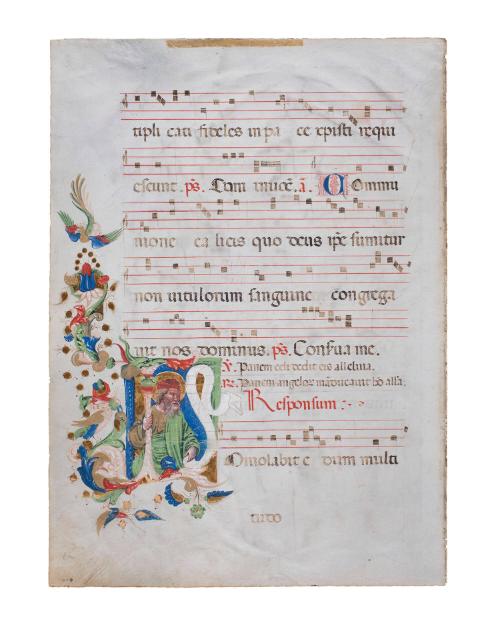 tipli cati fideles in pa ce xpisti requi
escunt. ps. Cum inuoc̄. a. Commu
nione ca licis quo deus ip̄e sumitur
non uitulorum sanguine congrega
uit nos dominus. ps. Conserua me.
V. Panem celi dedit eis alleluia.
R. Panem angeloꝝ māducauit hō alla;
Responsum
molabit e dum multi
tudo